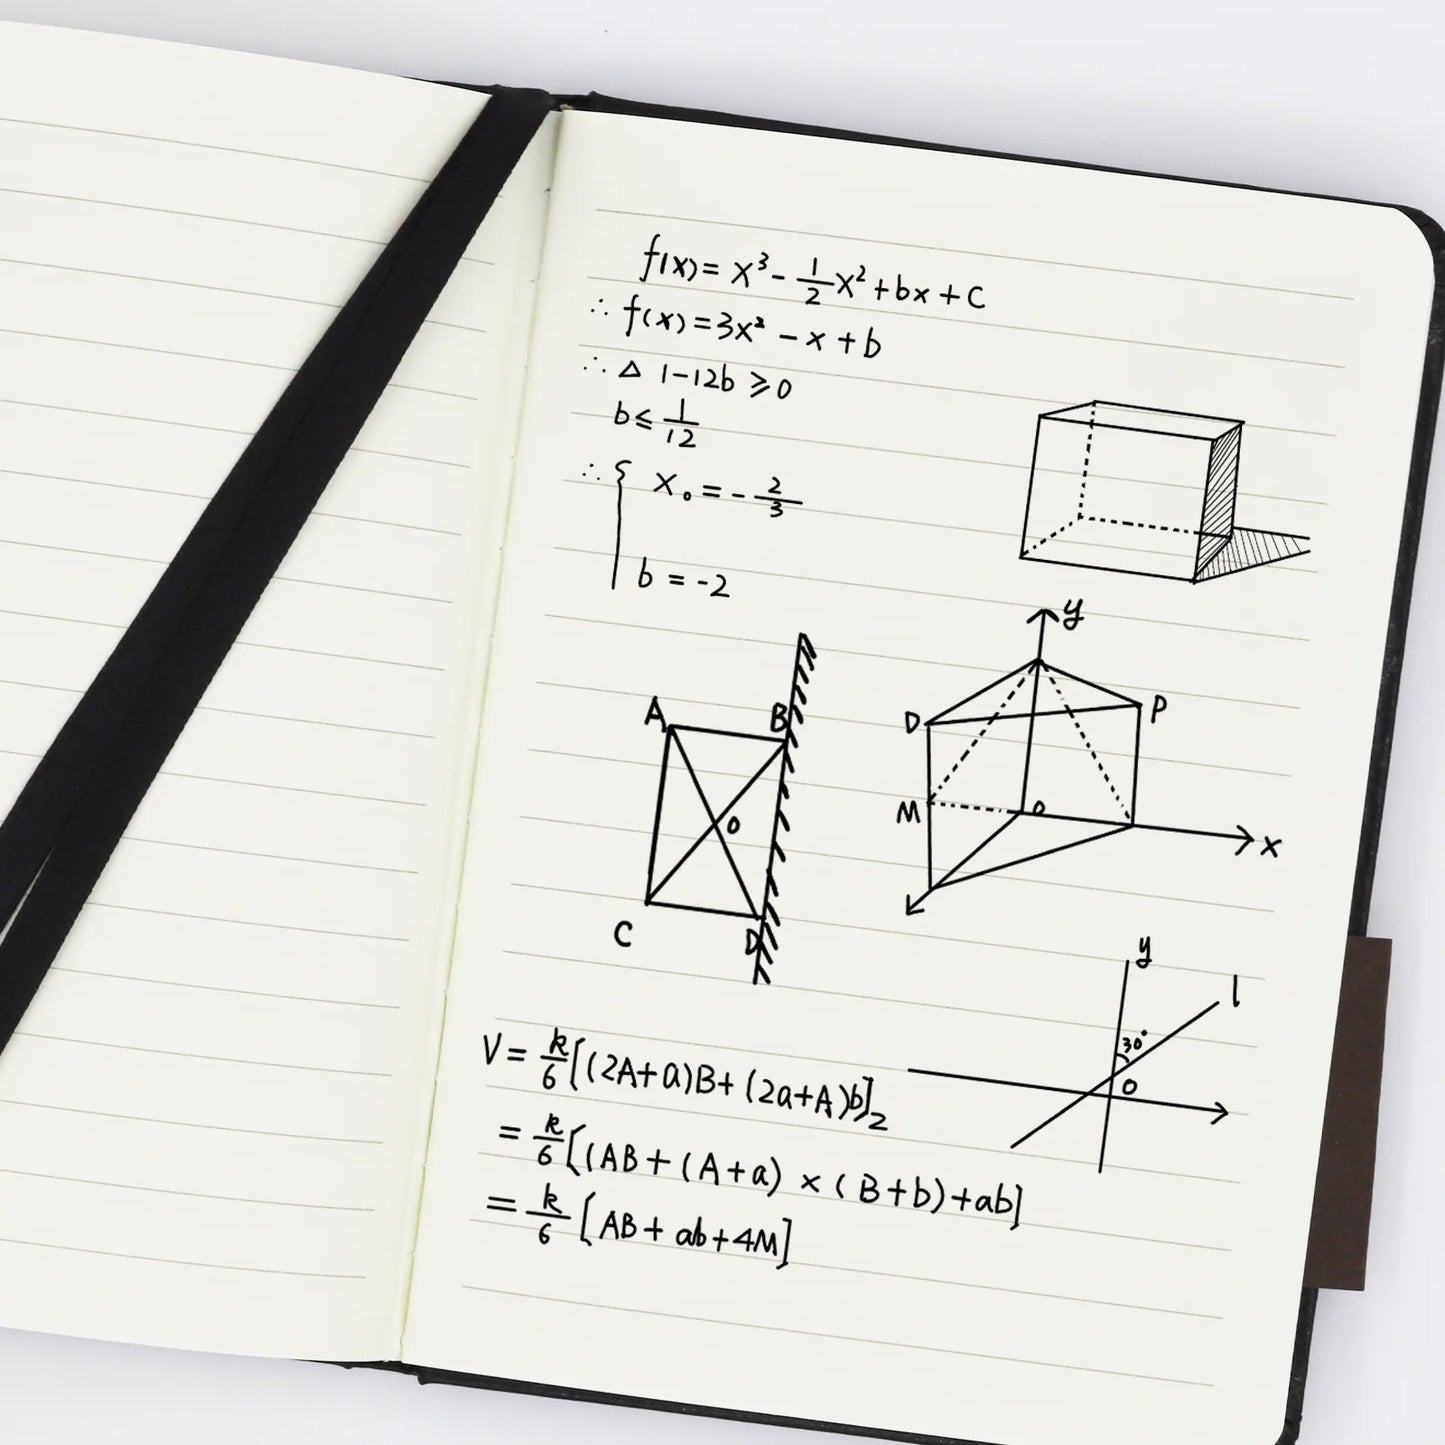 f(x) = x³ - 1/2 x² + bx + C
∴ f(x) = 3x² - x + b
∴ △ 1-12b ≥ 0
b ≤ 1/12
∴ { x₀ = - 2/3
b = -2
A B
O
C D
y
D P
M O
x
y
l
30°
O
V = k/6 [(2A+a)B + (2a+A)b]₂
= k/6 [(AB + (A+a) × (B+b) + ab]
= k/6 [AB + ab + 4M]